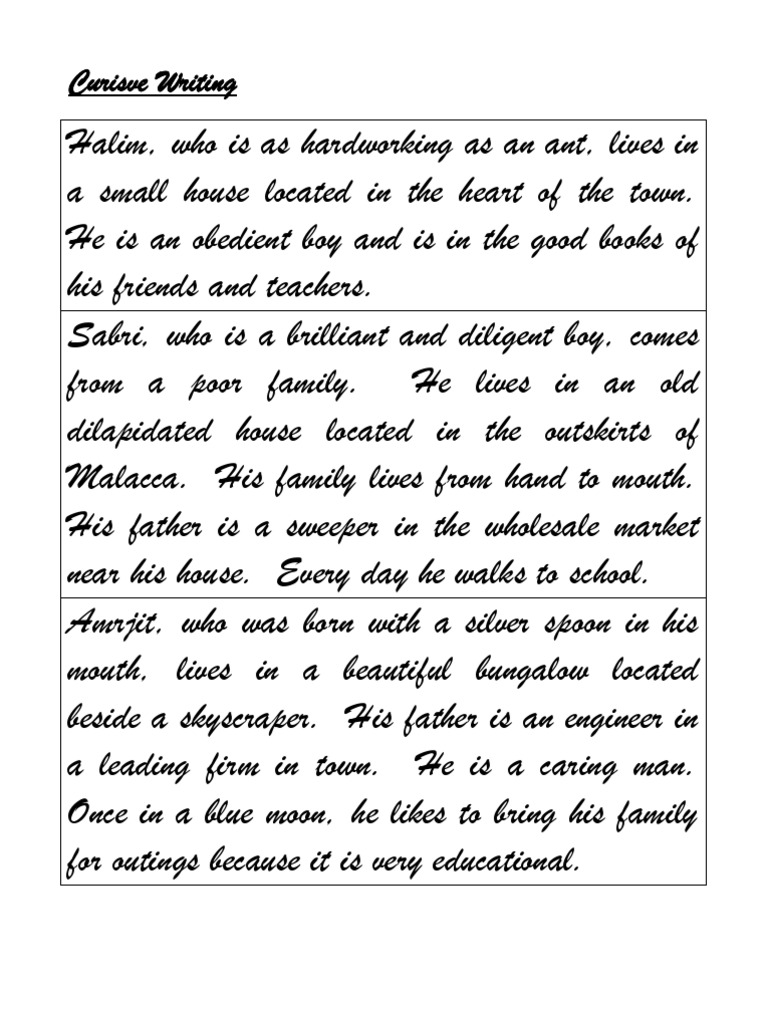 Curisve Writing
Halim, who is as hardworking as an ant, lives in
a small house located in the heart of the town.
He is an obedient boy and is in the good books of
his friends and teachers.
Sabri, who is a brilliant and diligent boy, comes
from a poor family. He lives in an old
dilapidated house located in the outskirts of
Malacca. His family lives from hand to mouth.
His father is a sweeper in the wholesale market
near his house. Every day he walks to school.
Amrjit, who was born with a silver spoon in his
mouth, lives in a beautiful bungalow located
beside a skyscraper. His father is an engineer in
a leading firm in town. He is a caring man.
Once in a blue moon, he likes to bring his family
for outings because it is very educational.